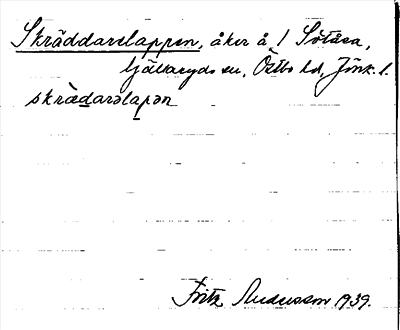 Skräddarelappen, åker å 1 Sötåsa,
Gällaryds sn, Östbo hd, Jönk. l.
skrädarəlapən
Fritz Andersson 1939.